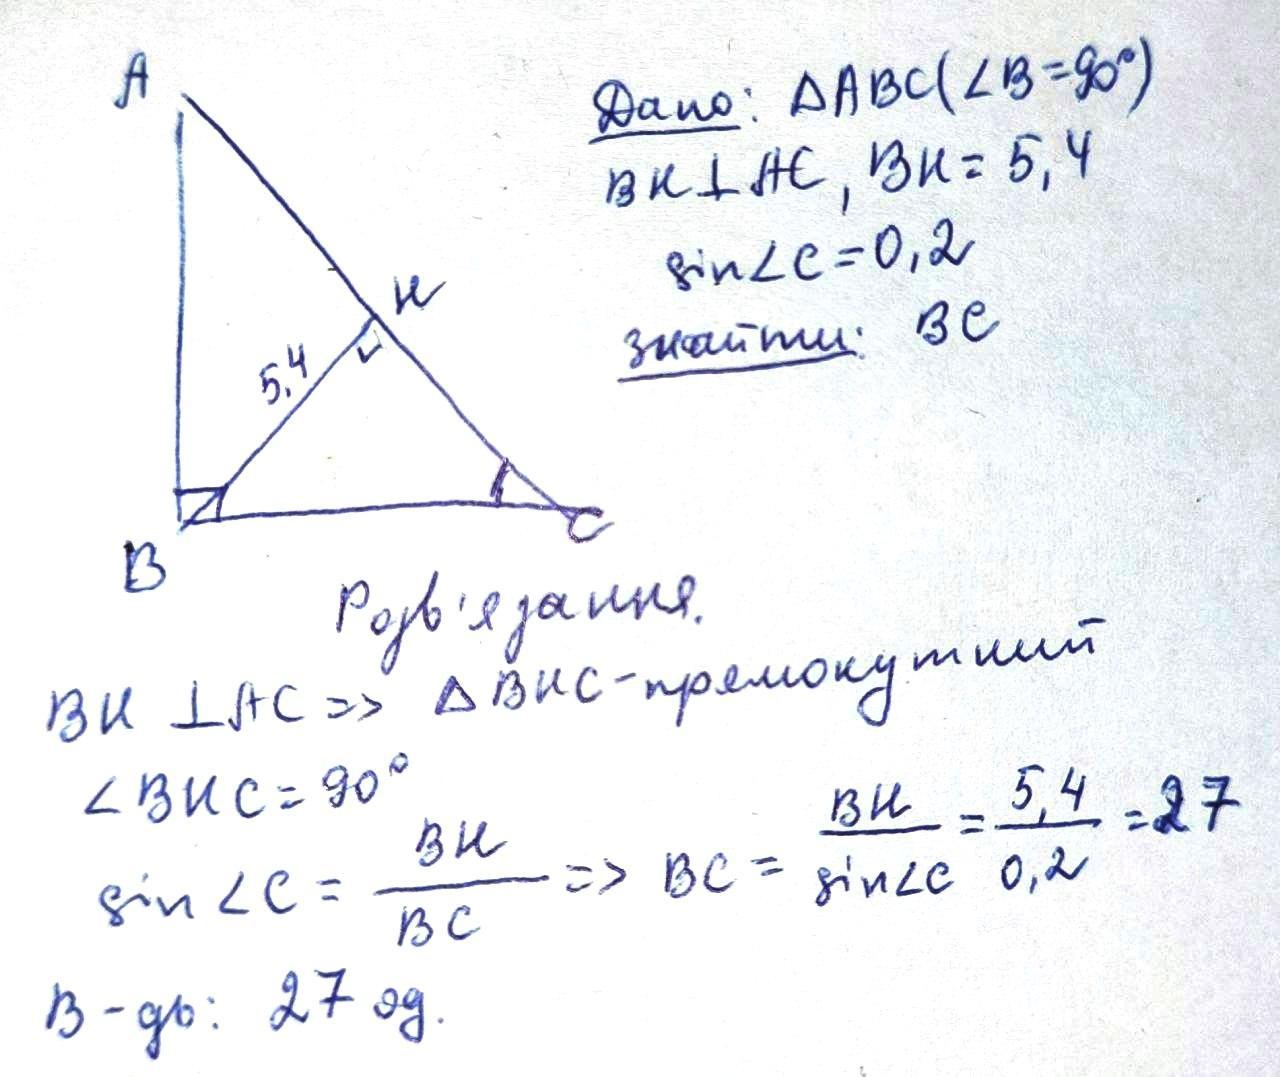 A
Дано: △ABC(∠B=90°)
BH⊥AC, BH=5,4
sin∠C=0,2
Знайти: BC
H
5,4
B
C
Розв'язання.
BH ⊥AC => △BHC-прямокутний
∠BHC=90°
sin∠C = BH/BC => BC = BH/sin∠C = 5,4/0,2 =27
В-дь: 27 од.